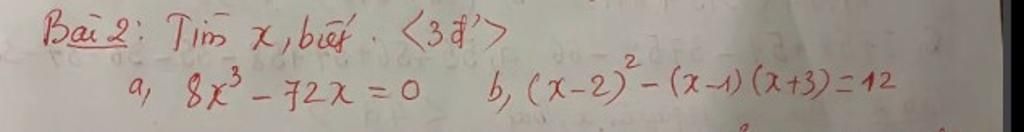 Bài 2: Tìm x, biết. <3đ'>
a, 8x³ - 72x = 0 b, (x-2)² - (x-1)(x+3) = 12